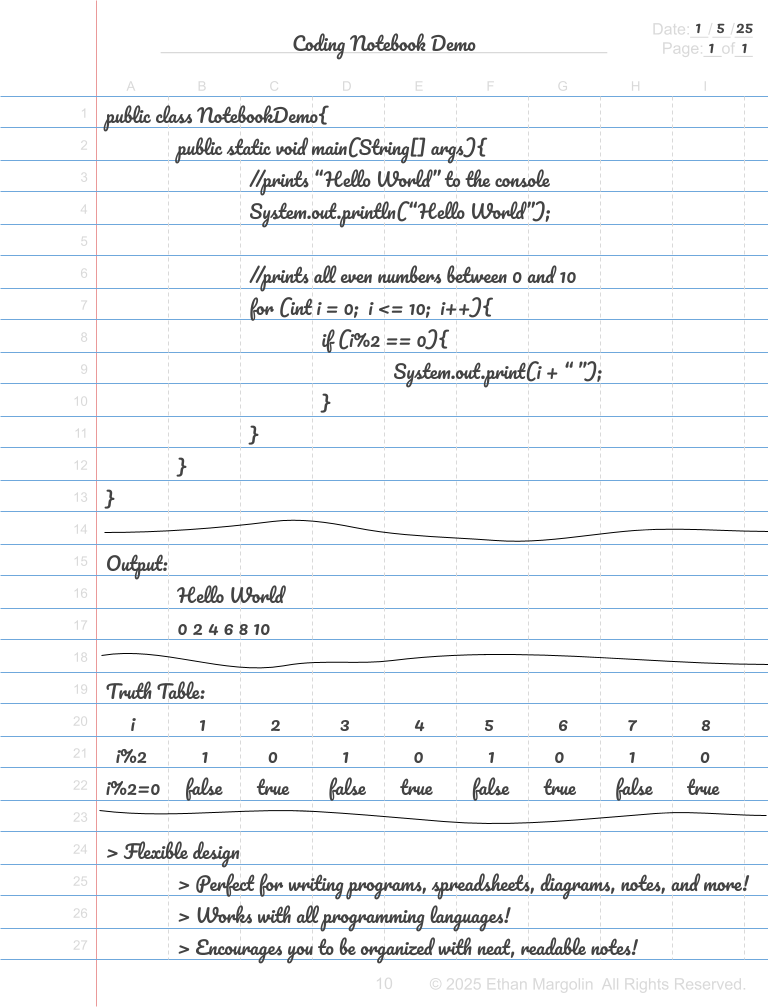 Coding Notebook Demo
Date: 1 / 5 / 25
Page: 1 of 1
A B C D E F G H I
1 public class NotebookDemo{
2 public static void main(String[] args){
3 //prints “Hello World” to the console
4 System.out.println(“Hello World”);
5
6 //prints all even numbers between 0 and 10
7 for (int i = 0; i <= 10; i++){
8 if (i%2 == 0){
9 System.out.print(i + “ ”);
10 }
11 }
12 }
13 }
14
15 Output:
16 Hello World
17 0 2 4 6 8 10
18
19 Truth Table:
20 i 1 2 3 4 5 6 7 8
21 i%2 1 0 1 0 1 0 1 0
22 i%2=0 false true false true false true false true
23
24 > Flexible design
25 > Perfect for writing programs, spreadsheets, diagrams, notes, and more!
26 > Works with all programming languages!
27 > Encourages you to be organized with neat, readable notes!
10 © 2025 Ethan Margolin All Rights Reserved.